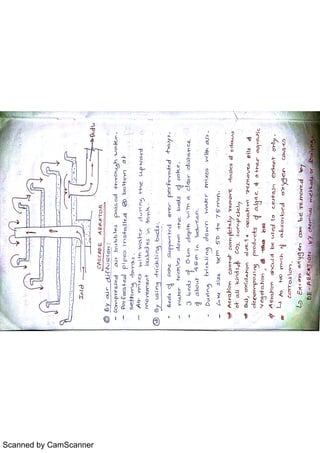 Inlet
CASCADE AERATOR
② By air diffusion:
- Compressed air bubbles passed through water.
- Perforated pipes installed @ bottom of
settling tanks.
- Air mixes with water during the upward
movement of bubbles in tank.
③ By using trickling beds:
- Beds of coke supported over perforated trays.
- Water trickles down the beds of coke.
- 3 beds of 0.6m depth with a clear distance
of about 0.45m in between.
- During trickling down water mixes with air.
- Coke size from 50 to 75mm.
* Aeration cannot completely remove tastes & odours
of all kinds, CO₂ completely
* But, oxidation due to aeration removes oils &
decomposing products of algae & other aquatic
vegetation.
* Aeration should be used to certain extent only.
↳ As too much of absorbed oxygen causes
corrosion.
↳ Excess oxygen can be removed by
DE-AERATION by chemical methods or
Scanned by CamScanner